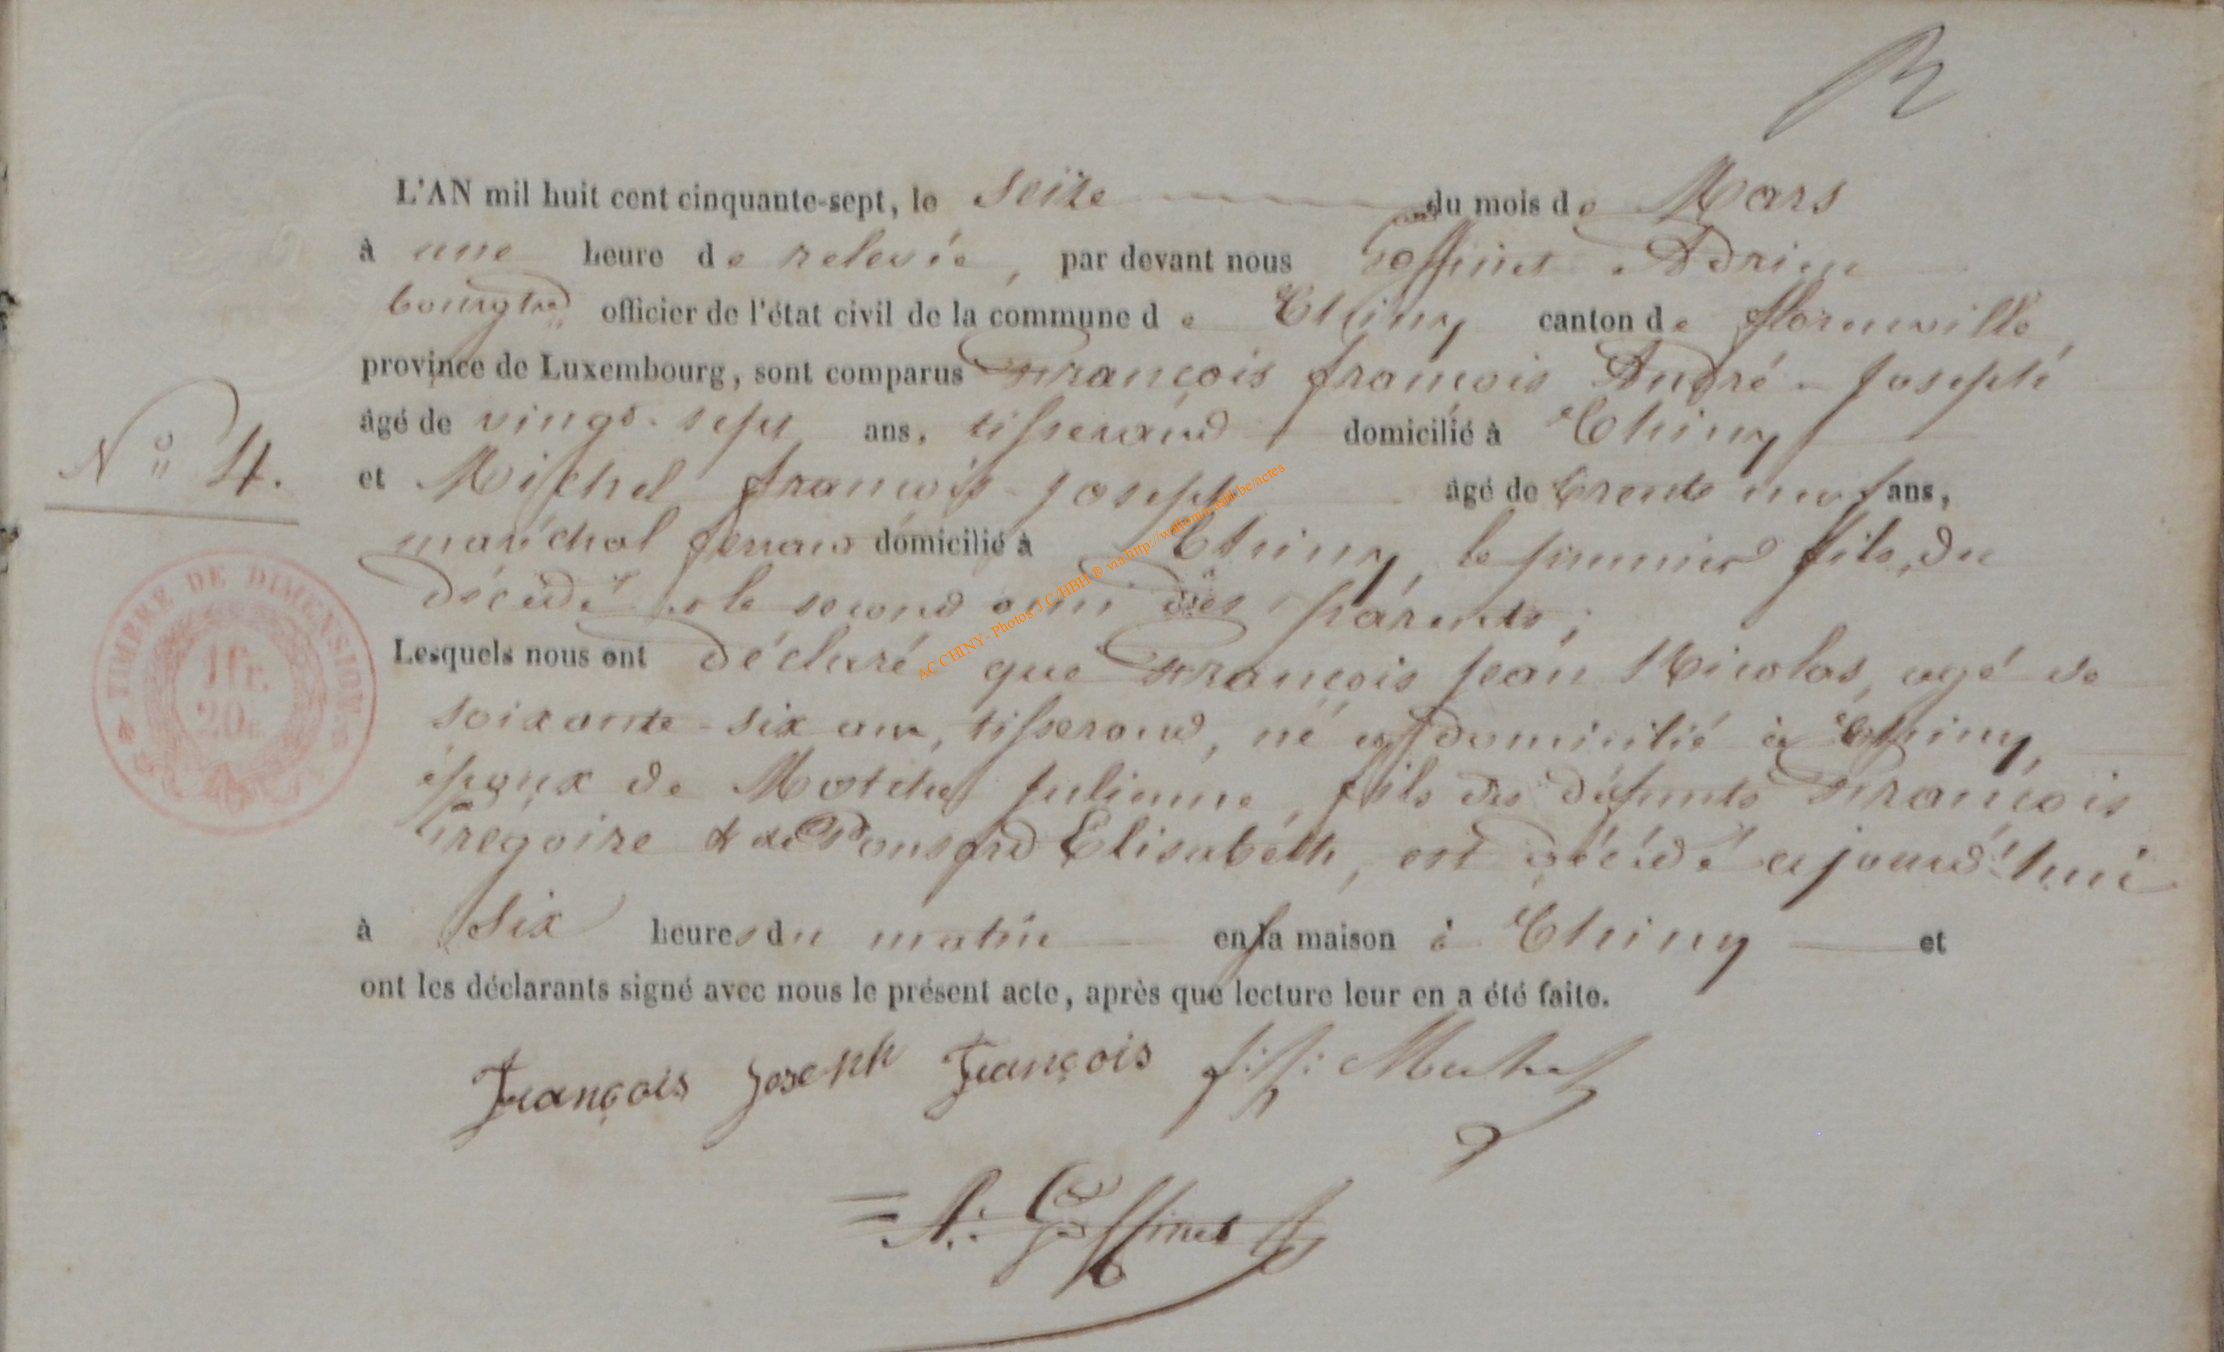 L'AN mil huit cent cinquante-sept, le seize du mois de Mars
à une heure de relevée, par devant nous Goffinet Adrien
bourgtre officier de l'état civil de la commune de Chiny canton de florenville,
province de Luxembourg, sont comparus François françois André-Joseph
âgé de vingt-sept ans, tisserand domicilié à Chiny
et Michel françois-Joseph âgé de trente neuf ans,
N° 4.
maréchal ferrand domicilié à Chiny, le premier fils du
décédé, & le second ami des parents;
Lesquels nous ont déclaré que François Jean Nicolas, agé de
soixante-six ans, tisserand, né et domicilié à Chiny,
époux de Julienne, fils des défunts François
Grégoire & de Ponsard Elisabeth, est décédé ajourd'hui
à six heures du matin en sa maison à Chiny et
ont les déclarants signé avec nous le présent acte, après que lecture leur en a été faite.
François Joseph François f: j: Michel
A: Goffinet
TIMBRE DE DIMENSION
1 fr.
20 c.
AC CHINY - Photos J.C.HBH ® via http://